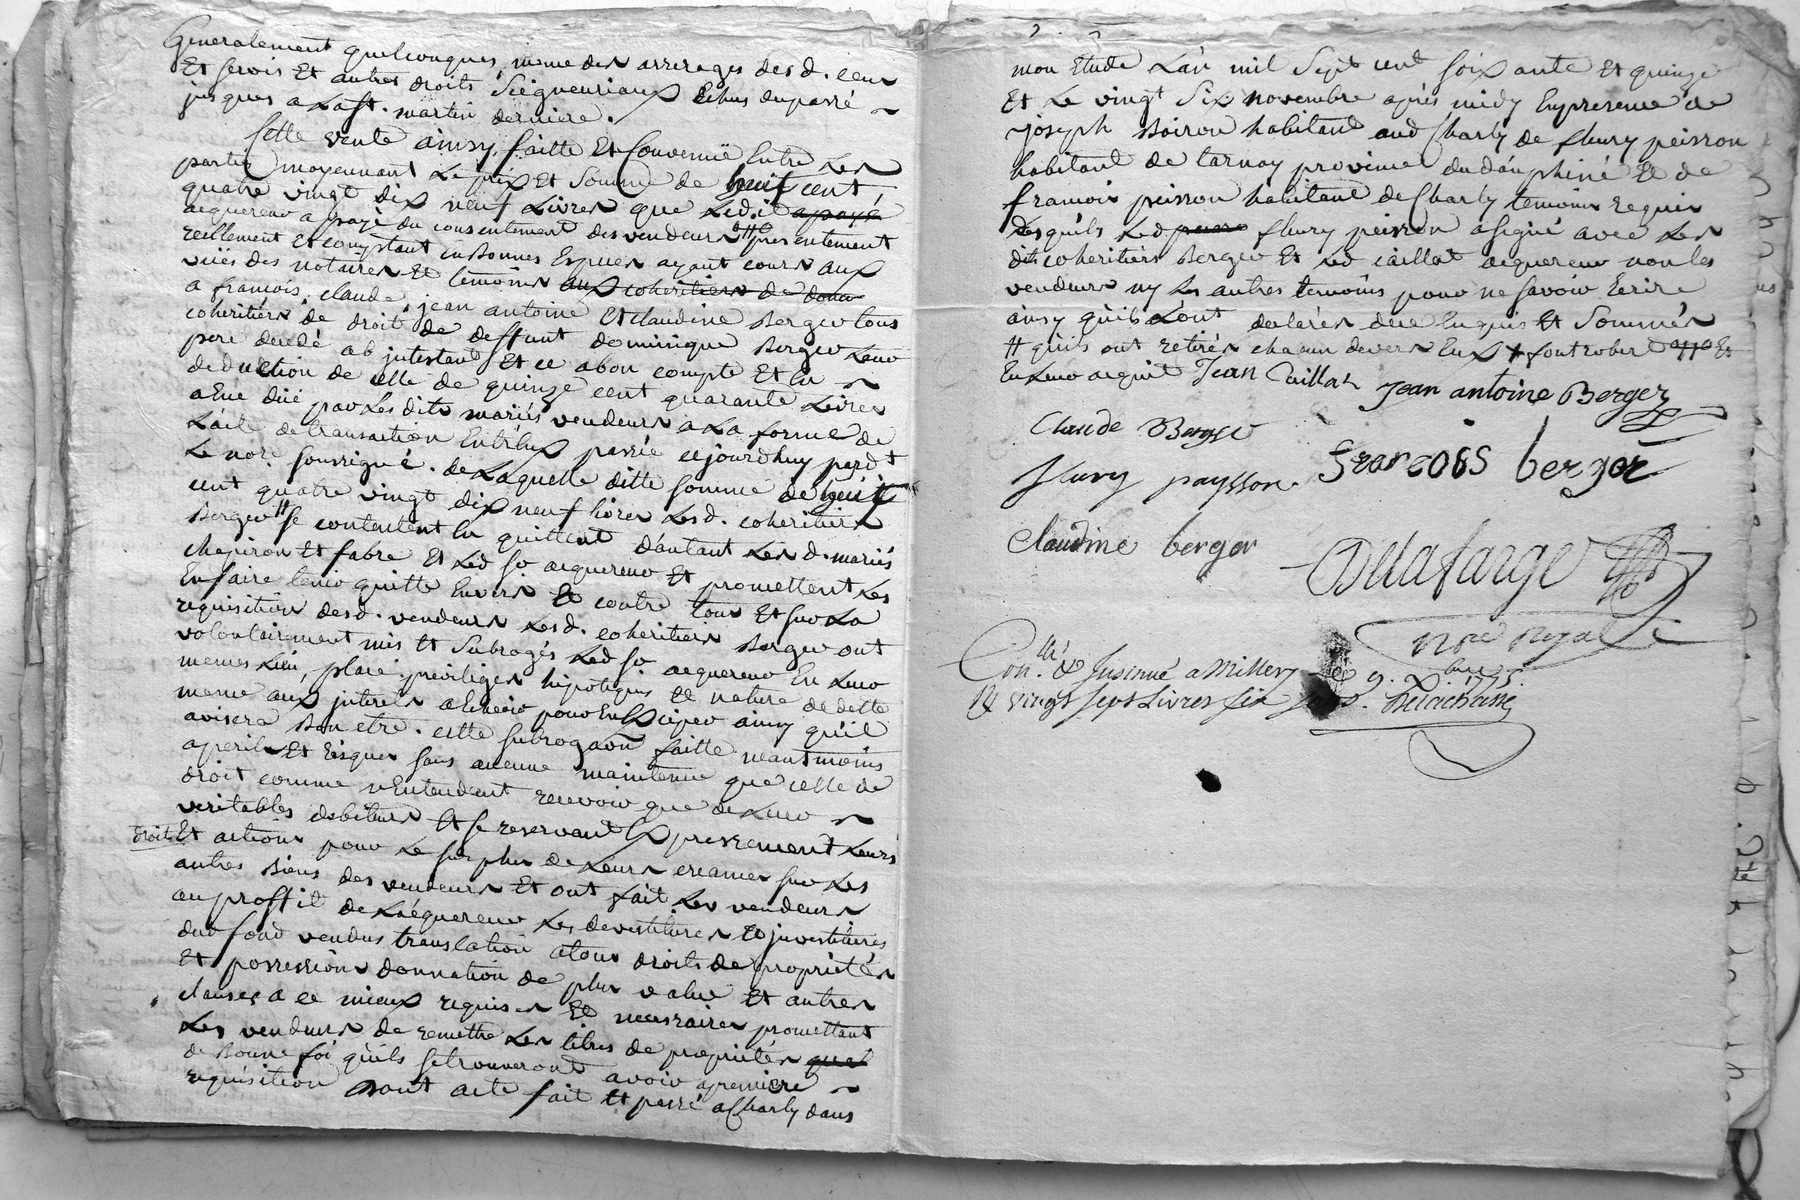 Generalement quelconques, même des arrerages desd. cens
Et servis Et autres droits Seigneuriaux Echus dupassé
jusques a La st. martin derniere.
Cette vente ainsy faitte Et Convenuë Entre Les
parties moyennant Le prix Et Somme de huit cent
quatre vingt dix neuf Livres que Led. apayé
acquereur a payé du consentement des vendeurs presentement
reellement Et comptant En Bonnes Especes ayant cours aux
vuës des notaires Et temoins aux coheritiers de
a francois, claude, jean antoine Et claudine Berger tous
coheritiers de droit de deffunt dominique Berger Leur
pere decedé ab jntestant Et ce a bon compte Et En
deduction de celle de quinze cent quarante Livres
a Eux düe par Les dits mariés vendeurs a La forme de
L'acte de transaction Entr'Eux passée cejourdhuy pard.t
Le nore. soussigné. de Laquelle ditte somme de huit
cent quatre vingt dix neuf livres Lesd. coheritiers
Berger se contentent En quittent d'autant Les d. mariés
chapiron Et fabre Et Led. sr. acquereur Et promettent Les
En faire tenir quitte Envers Et contre tous Et sur La
requisition desd. vendeurs Lesd. coheritiers Berger ont
volontairement mis Et Subrogés Led. sr. acquereur En Leur
memes Lieu, place, privileges hipoteques Et nature de dette
meme aux jnterets a Echeoir pour En Exiper ainsy qu'il
avisera Bon etre. cette subrogaōn faitte neantmoins
a perils Et risques sans aucune maintenue que celle de
droit comme n'Entendent recevoir que de Leur
veritables debiteurs Et se reservant Expressement Leurs
droits Et actions pour Le surplus de Leurs creances sur Les
autres Biens des vendeurs Et ont fait Les vendeurs
au proffit de L'acquereur Les devestitures Et jnvestitures
dud. fond vendus translation a tous droits de proprietés
Et possessions donnation de plus value Et autres
clauses a ce mieux requises Et necessaires promettant
Les vendeurs de remettre Les titres de proprietés quel
de Bonne foi qu'ils se trouveront avoir a premiere
requisition dont acte fait Et passé a Charly dans
mon Etude L'an mil Sept cent soixante Et quinze
Et Le vingt Six novembre après midy En presence de
joseph Boiron habitant aud. Charly de fleury peisson
habitant de ternay province du dauphiné Et de
francois peisson habitant de Charly temoins requis
desquels Led. fleury peisson a signé avec Les
dits coheritiers Berger Et Led. caillat acquereur non les
vendeurs ny Les autres temoins pour ne savoir Ecrire
ainsy qu'ils L'ont declarés de ce Enquis Et Sommés
# qu'ils ont retirés chacun devers Eux Et
En Leur acquit Jean Caillat Jean antoine Berger
Claude Berger
Francois berger
fleury paysson
Claudine berger
Delafarge
Nore Royal
Con.llé & Insinué a Millery Le 9. Xbre 1775.
R vingt sept Livres six sols. Delachasse